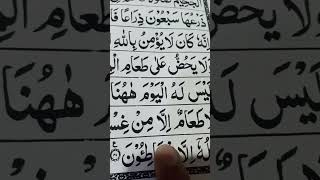 الْجَحِيْمَ
ذَرْعُهَا سَبْعُوْنَ ذِرَاعًا فَا
اِنَّهٗ كَانَ لَا يُؤْمِنُ بِاللّٰهِ
وَلَا يَحُضُّ عَلٰى طَعَامِ الْ
لَيْسَ لَهُ الْيَوْمَ هٰهُنَا
طَعَامٌ اِلَّا مِنْ غِسْ
لُهٗۤ اِلَّا طِـُٔوْنَ